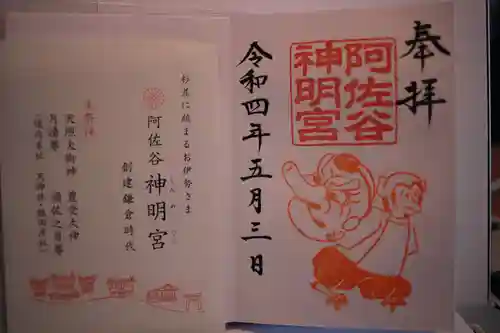 奉拝
阿佐谷
神明宮
令和四年五月三日
杉並に鎮まるお伊勢さま
阿佐谷 神明宮
しんめいぐう
創建鎌倉時代
主祭神
天照大御神 豊受大神
月讀尊 須佐之男尊